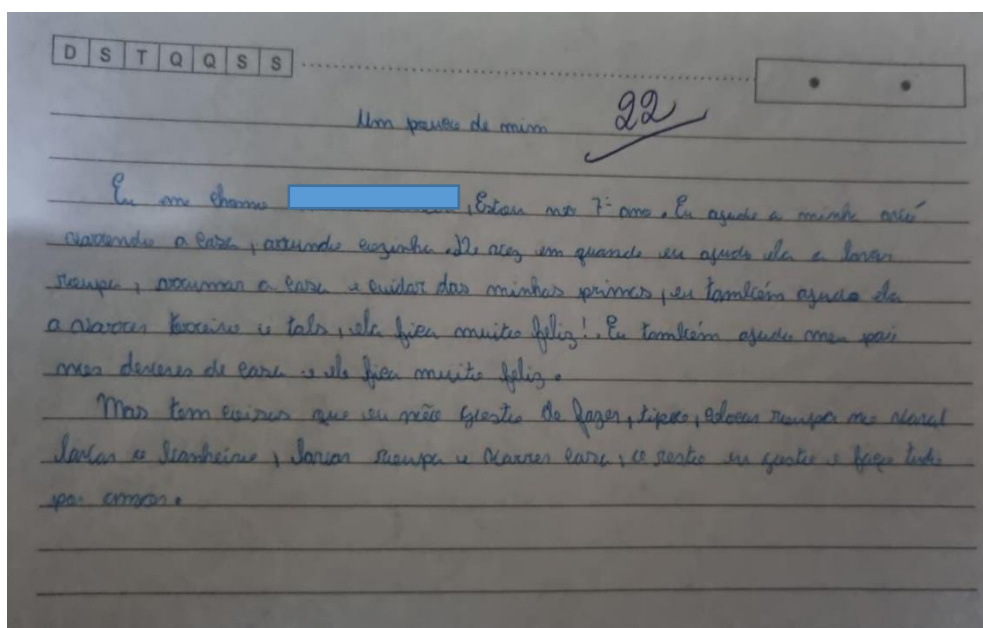 D S T Q Q S S
Um pouco de mim 22
Eu me chamo , Estou no 7º ano. Eu ajudo a minha avó
varrendo a casa, arrumando cozinha. De vez em quando eu ajudo ela a lavar
roupa, arrumar a casa e cuidar das minhas primas, eu também ajudo ela
a varrer terreiro e tals, ela fica muito feliz!. Eu também ajudo meu pai
nos deveres de casa e ele fica muito feliz.
Mas tem coisas que eu não gosto de fazer, tipo, colocar roupa no varal
lavar o banheiro, lavar roupa e varrer casa, o resto eu gosto e faço tudo
por amor.